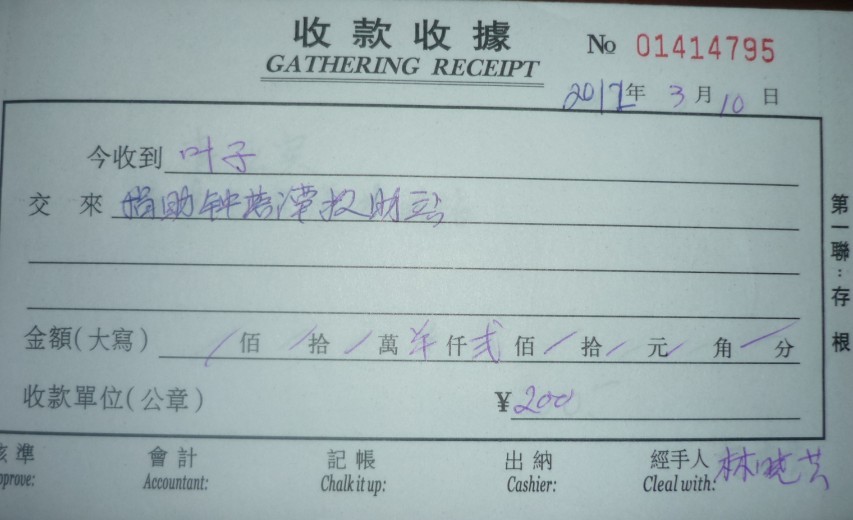 收款收據
GATHERING RECEIPT
№ 01414795
2017年 3月10日
今收到 叶子
交 來 捐助钟落潭投财站
金額(大寫) / 佰 / 拾 / 萬 羊 仟 贰 佰 / 拾 / 元 / 角 / 分
收款單位(公章) ¥200
核準 會計 記帳 出納 經手人 林晓
pprove: Accountant: Chalk it up: Cashier: Cleal with:
第一聯:存根